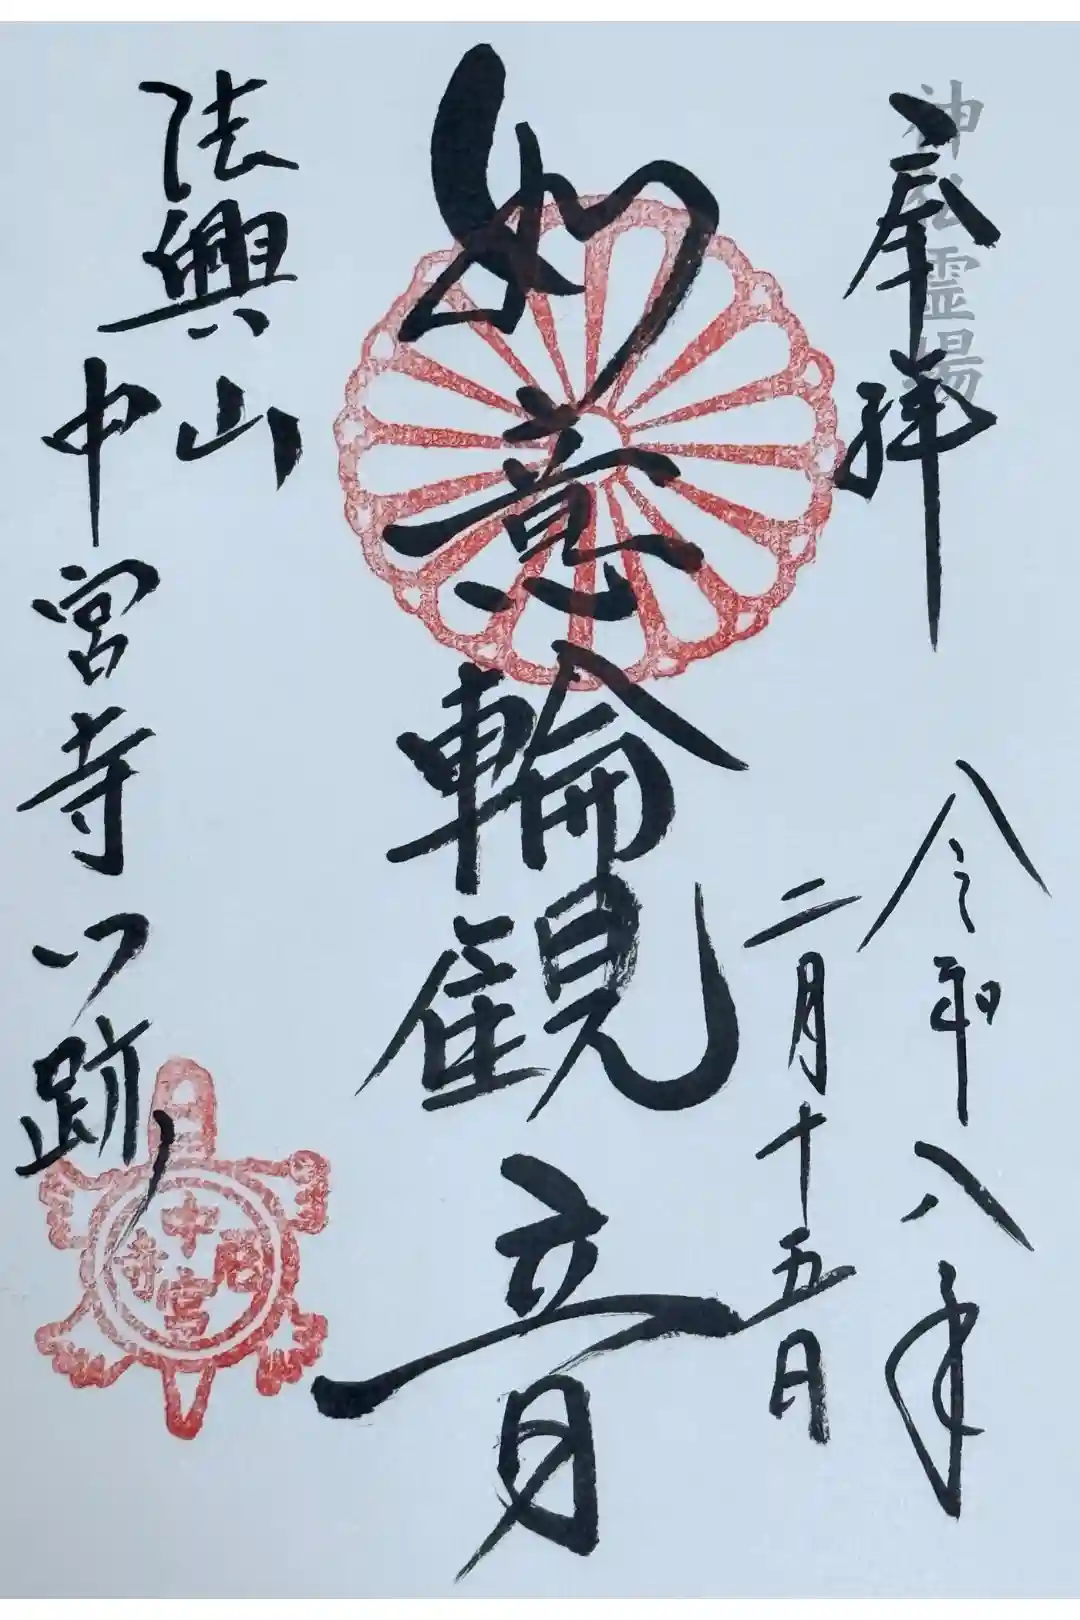 奉拝
神仏霊場
令和八年
二月十五日
如意輪観音
法興山
中宮寺門跡
中宮尼寺